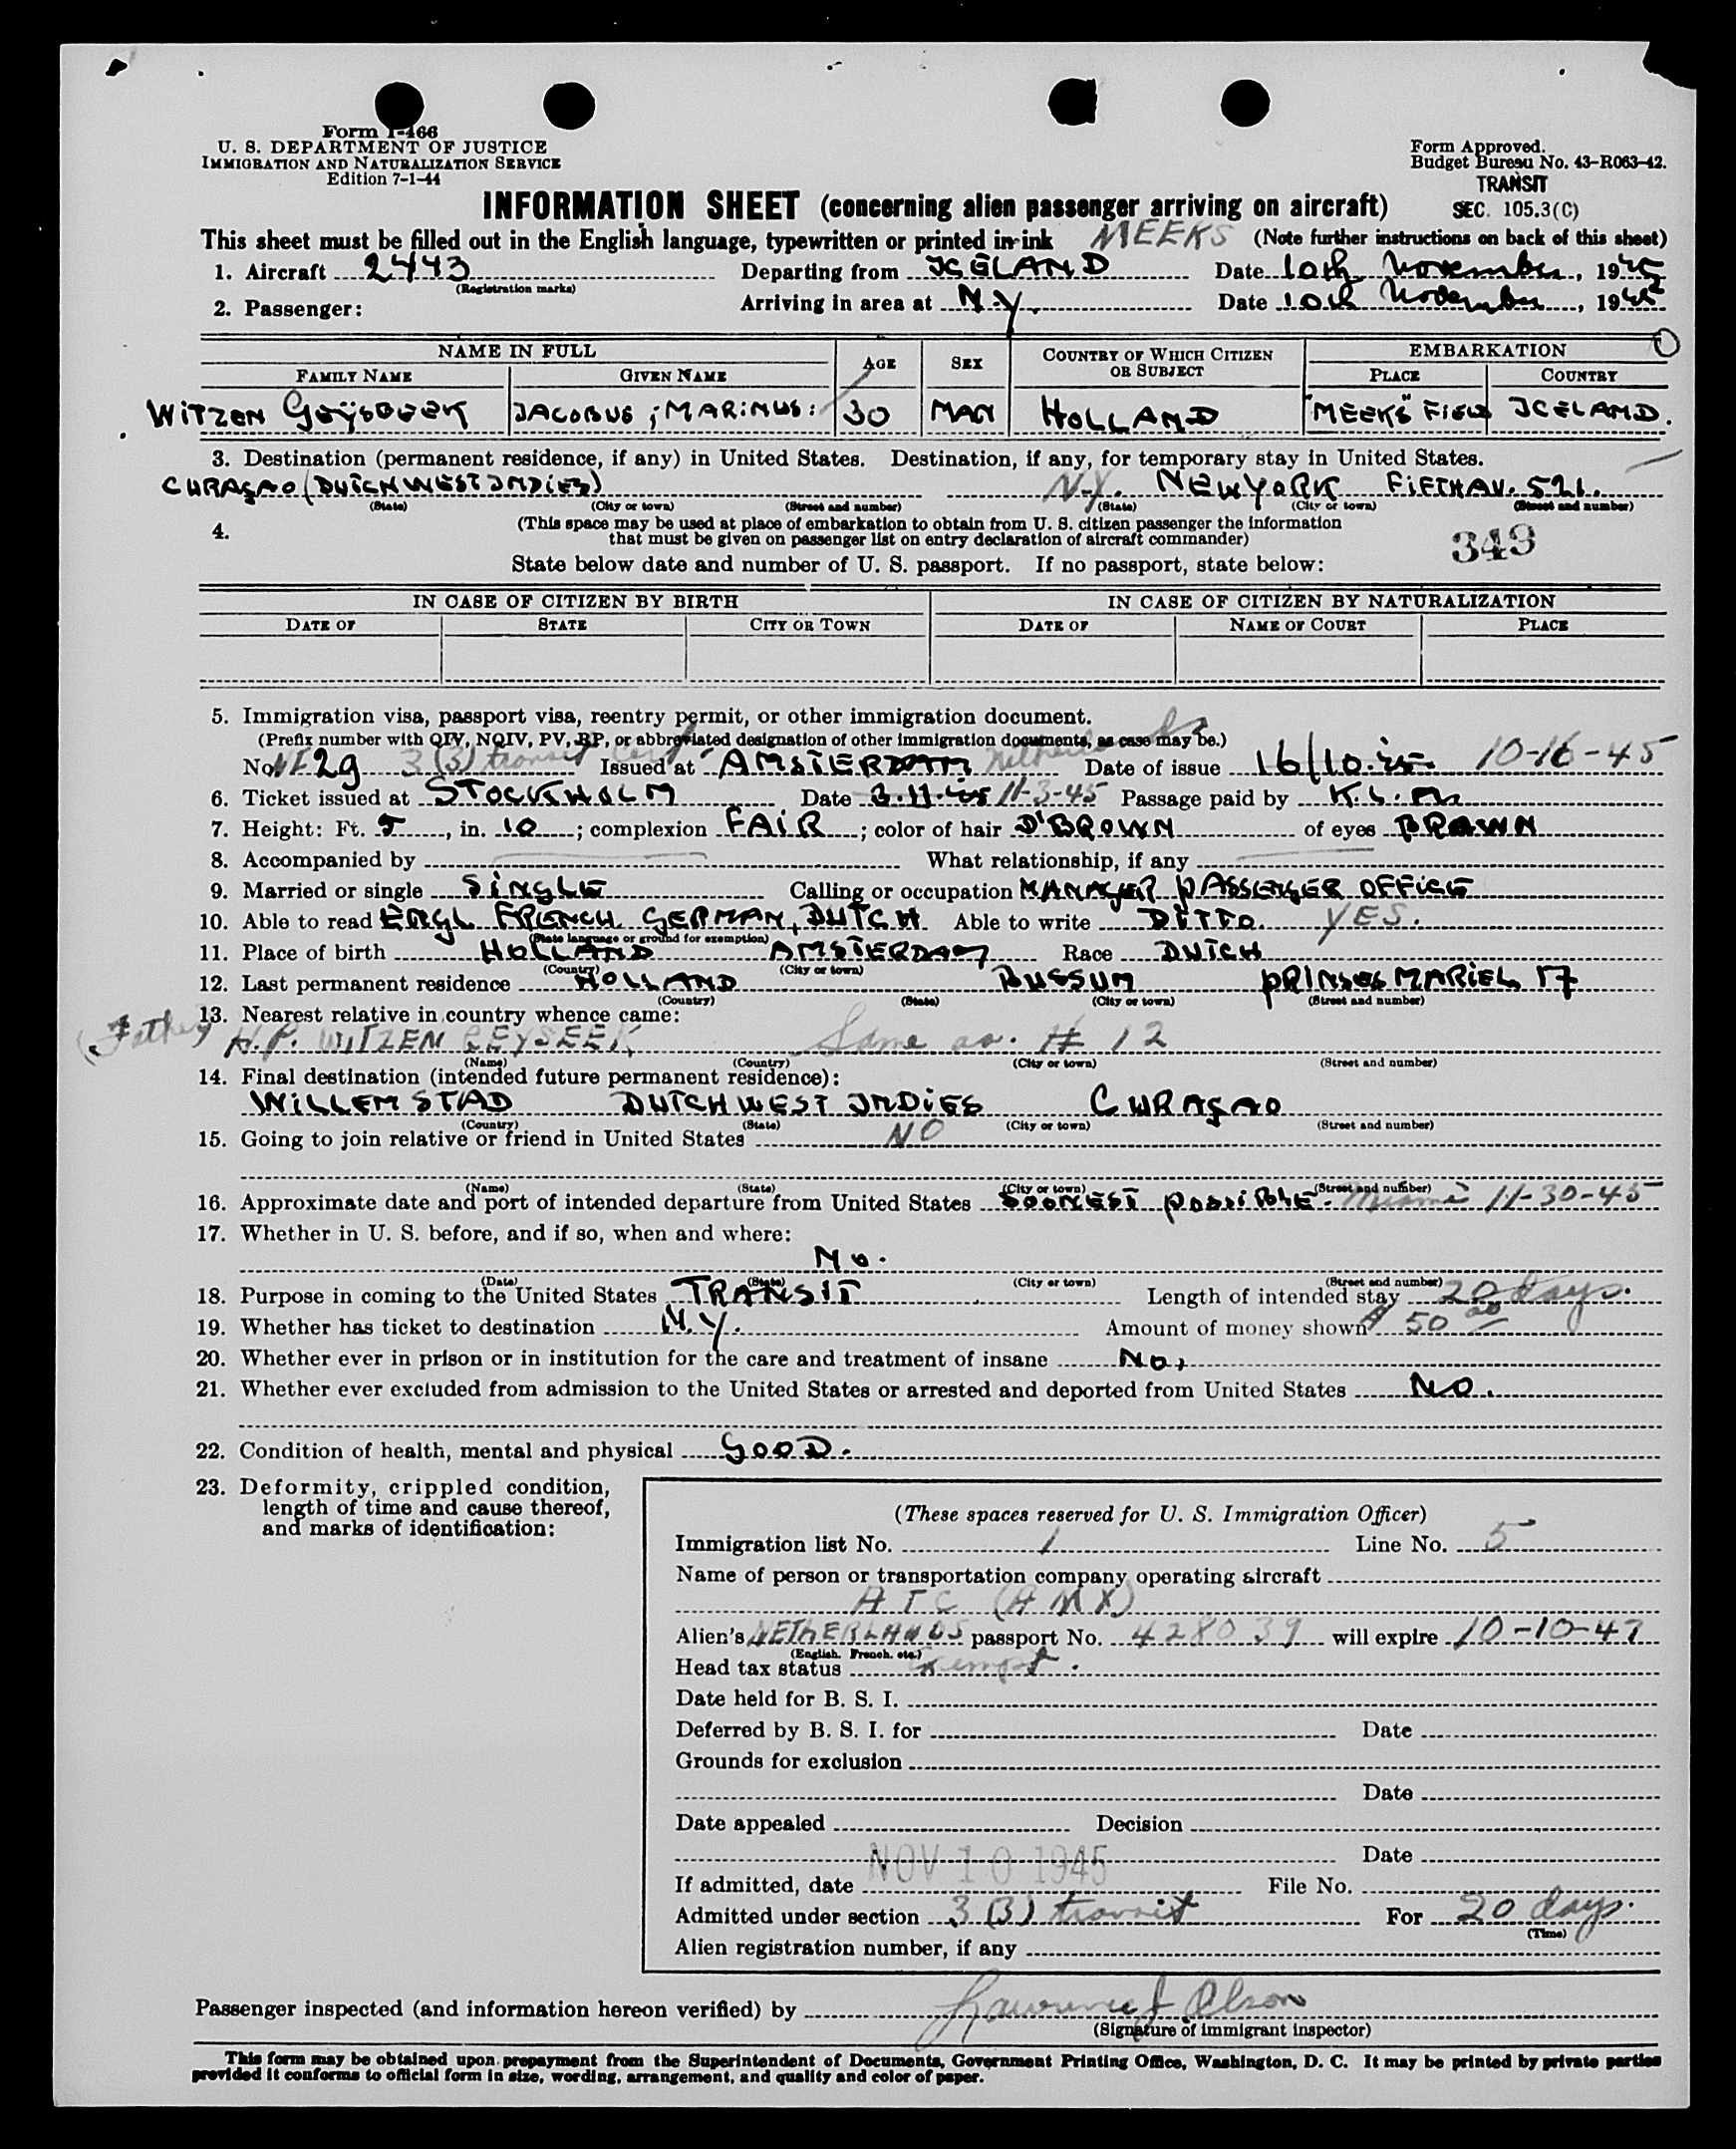 Form I-466
U. S. DEPARTMENT OF JUSTICE
IMMIGRATION AND NATURALIZATION SERVICE
Edition 7-1-44
Form Approved.
Budget Bureau No. 43-R063-42.
TRANSIT
SEC. 105.3(C)
INFORMATION SHEET (concerning alien passenger arriving on aircraft)
This sheet must be filled out in the English language, typewritten or printed in ink MEEKS (Note further instructions on back of this sheet)
1. Aircraft 2443 Departing from ICELAND Date 10th November, 1945
(Registration marks)
2. Passenger: Arriving in area at N.Y. Date 10th November, 1945
NAME IN FULL AGE SEX COUNTRY OF WHICH CITIZEN OR SUBJECT EMBARKATION
FAMILY NAME GIVEN NAME PLACE COUNTRY
WITZEN GEYSBEEK JACOBUS; MARINUS: 30 MAN HOLLAND "MEEKS" FIELD ICELAND.
3. Destination (permanent residence, if any) in United States. Destination, if any, for temporary stay in United States.
CURAÇAO (DUTCH WEST INDIES) N.Y. NEW YORK FIFTH AV. 521.
(State) (City or town) (Street and number) (State) (City or town) (Street and number)
4. (This space may be used at place of embarkation to obtain from U. S. citizen passenger the information
that must be given on passenger list on entry declaration of aircraft commander)
349
State below date and number of U. S. passport. If no passport, state below:
IN CASE OF CITIZEN BY BIRTH IN CASE OF CITIZEN BY NATURALIZATION
DATE OF STATE CITY OR TOWN DATE OF NAME OF COURT PLACE
5. Immigration visa, passport visa, reentry permit, or other immigration document.
(Prefix number with QIV, NQIV, PV, RP, or abbreviated designation of other immigration documents, as case may be.)
No. 29 3(3) transit Cert Issued at AMSTERDAM Netherlands Date of issue 16/10.45. 10-16-45
6. Ticket issued at STOCKHOLM Date 3.11.45 11-3-45 Passage paid by K.L.M.
7. Height: Ft. 5, in. 10; complexion FAIR; color of hair D'BROWN of eyes BROWN
8. Accompanied by What relationship, if any
9. Married or single SINGLE Calling or occupation MANAGER PASSENGER OFFICE
10. Able to read ENGL FRENCH GERMAN, DUTCH Able to write DITTO. YES.
(State language or ground for exemption)
11. Place of birth HOLLAND AMSTERDAM Race DUTCH
(Country) (City or town)
12. Last permanent residence HOLLAND BUSSUM PRINSES MARIEL 17
(Country) (State) (City or town) (Street and number)
13. Nearest relative in country whence came:
(Father) H.P. WITZEN GEYSEEK Same as. # 12
(Name) (Country) (City or town) (Street and number)
14. Final destination (intended future permanent residence):
WILLEMSTAD DUTCH WEST INDIES CURAÇAO
(Country) (State) (City or town) (Street and number)
15. Going to join relative or friend in United States NO
(Name) (State) (City or town) (Street and number)
16. Approximate date and port of intended departure from United States SOONEST POSSIBLE. Miami 11-30-45
17. Whether in U. S. before, and if so, when and where:
No.
(Date) (State) (City or town) (Street and number)
18. Purpose in coming to the United States TRANSIT Length of intended stay 20 days.
19. Whether has ticket to destination N.Y. Amount of money shown $ 50 00
20. Whether ever in prison or in institution for the care and treatment of insane No,
21. Whether ever excluded from admission to the United States or arrested and deported from United States NO.
22. Condition of health, mental and physical GOOD.
23. Deformity, crippled condition,
length of time and cause thereof,
and marks of identification:
(These spaces reserved for U. S. Immigration Officer)
Immigration list No. 1 Line No. 5
Name of person or transportation company operating aircraft
ATC (AMX)
Alien's NETHERLANDS passport No. 428039 will expire 10-10-47
(English, French, etc.)
Head tax status exempt.
Date held for B. S. I.
Deferred by B. S. I. for Date
Grounds for exclusion
Date
Date appealed Decision
Date
NOV 10 1945
If admitted, date File No.
Admitted under section 3(3) transit For 20 days.
(Time)
Alien registration number, if any
Passenger inspected (and information hereon verified) by Lawrence J Olson
(Signature of immigrant inspector)
This form may be obtained upon prepayment from the Superintendent of Documents, Government Printing Office, Washington, D. C. It may be printed by private parties
provided it conforms to official form in size, wording, arrangement, and quality and color of paper.